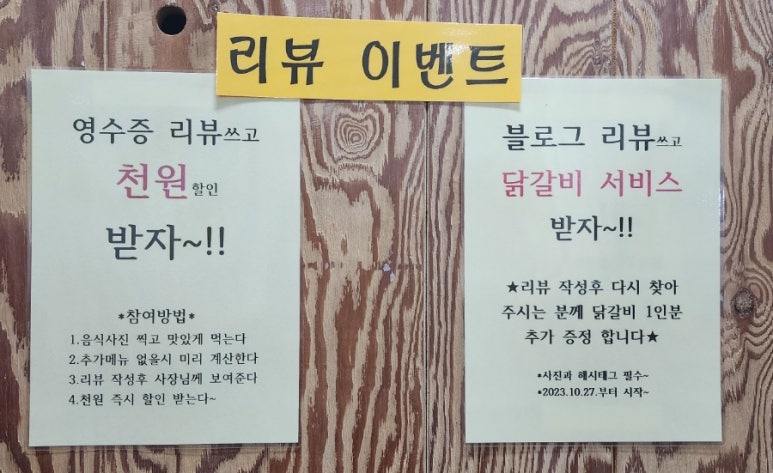 리뷰 이벤트
영수증 리뷰쓰고
천원할인
받자~!!
*참여방법*
1.음식사진 찍고 맛있게 먹는다
2.추가메뉴 없을시 미리 계산한다
3.리뷰 작성후 사장님께 보여준다
4.천원 즉시 할인 받는다~
블로그 리뷰쓰고
닭갈비 서비스
받자~!!
★리뷰 작성후 다시 찾아
주시는 분께 닭갈비 1인분
추가 증정 합니다★
*사진과 해시태그 필수~
*2023.10.27.부터 시작~